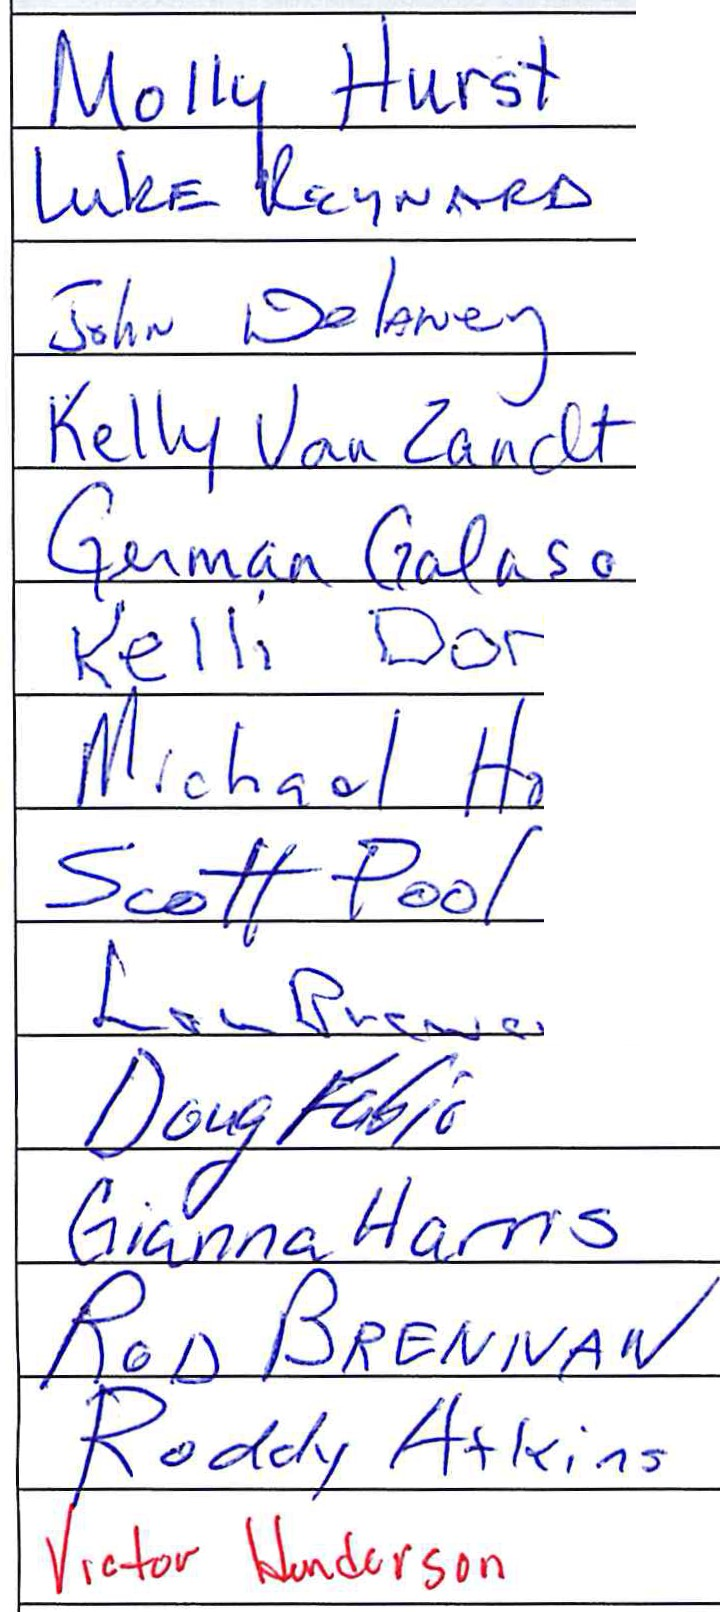 Molly Hurst
LUKE REYNARD
John Delaney
Kelly Van Zandt
German Galaso
Kelli Dor
Michael Ho
Scott Pool
Doug Fabio
Gianna Harris
ROD BRENNAN
Roddy Atkins
Victor Henderson